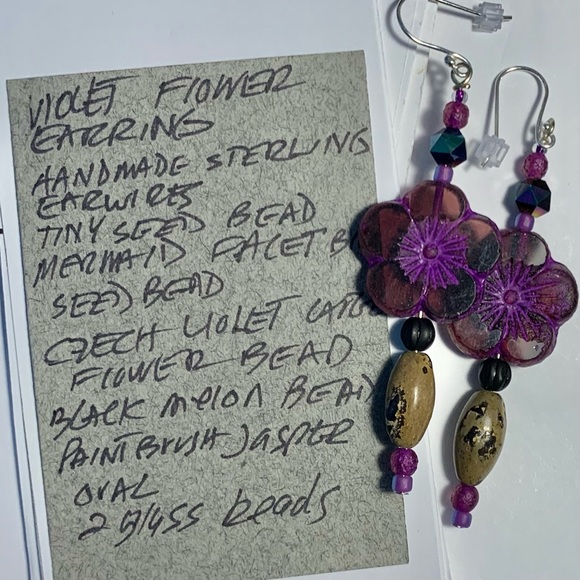 VIOLET FLOWER
EARRING
HANDMADE STERLING
EARWIRES
TINY SEED BEAD
MERMAID FACET B
SEED BEAD
CZECH VIOLET
FLOWER BEAD
BLACK MELON BEAD
PAINTBRUSH JASPER
OVAL
2 glass beads